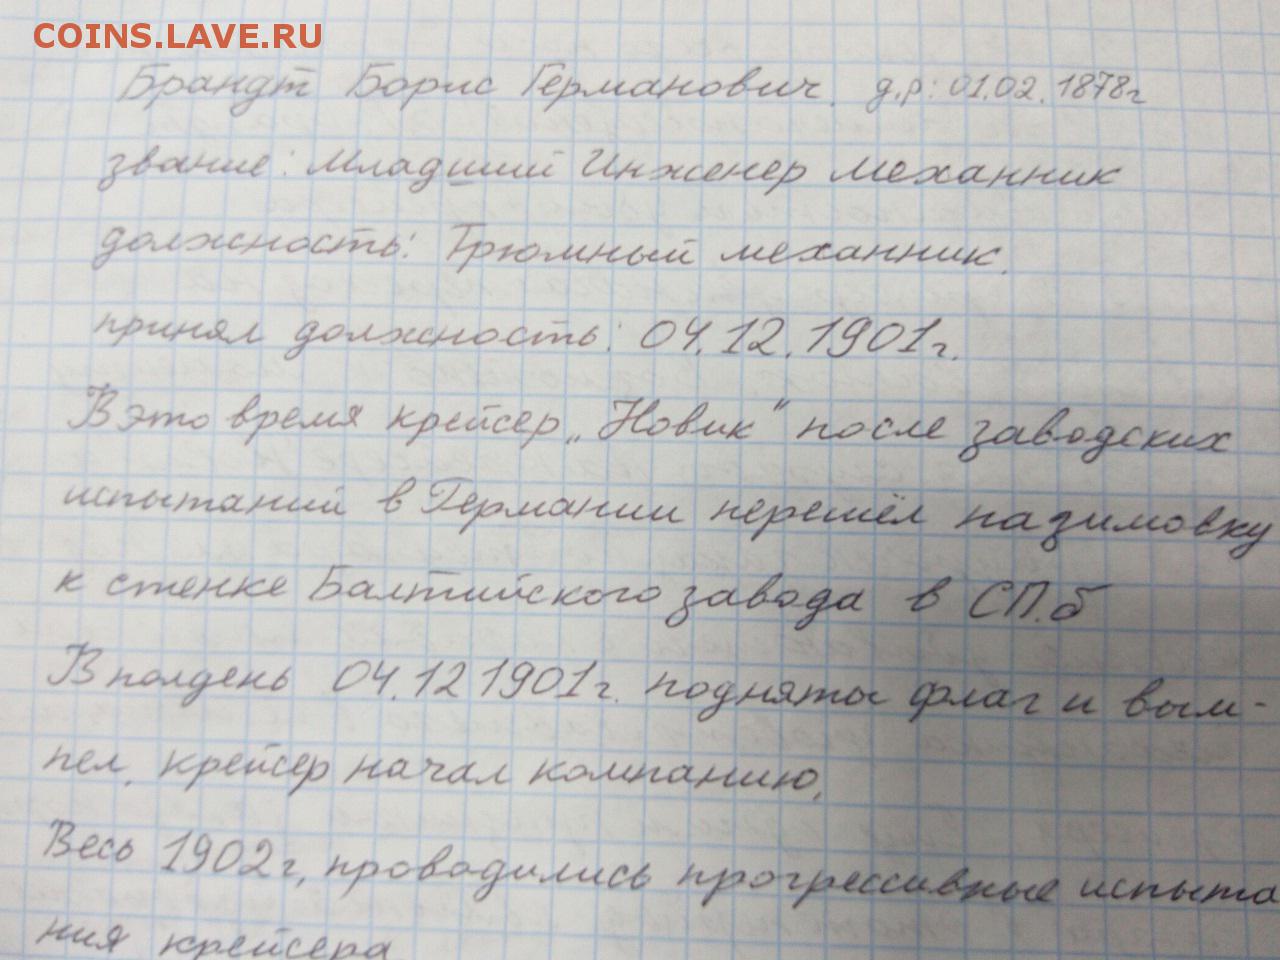 COINS.LAVE.RU
Брандт Борис Германович. д.р: 01.02.1878г
звание: Младший Инженер Механник
должность: Трюмный механник.
принял должность: 04.12.1901г.
В это время крейсер „Новик" после заводских
испытаний в Германии перешёл на зимовку
к стенке Балтийского завода в СП.б
В полдень 04.12 1901г. подняты флаг и вым-
пел. крейсер начал компанию.
Весь 1902г, проводились прогрессивные испыта
ния крейсера